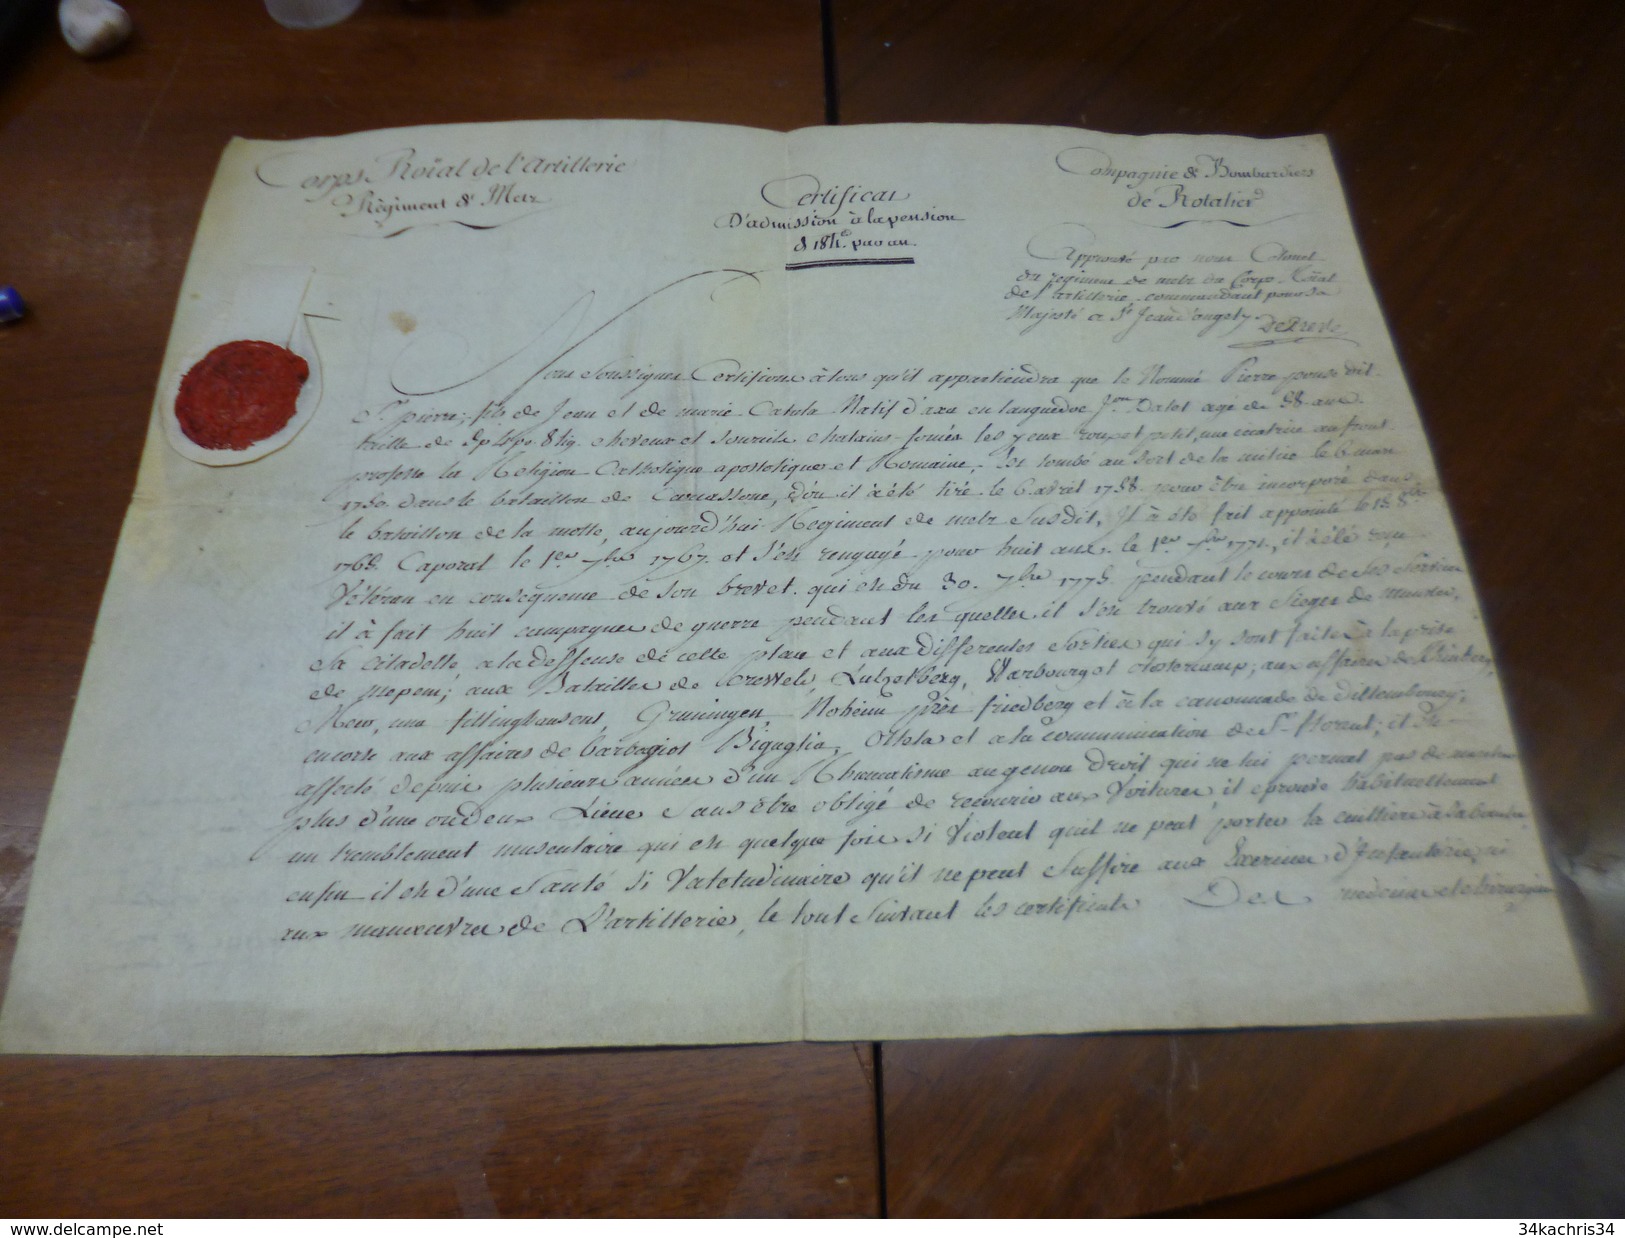 Corps Roïal de l'Artillerie
Régiment de Metz
Certificat
D'admission à la pension
de 184.tt par an.
Compagnie de Bombardiers
de Rotalier
Approuvé par nous Colonel
du regiment de metz du Corps Roïal
de l'artillerie commandant pour sa
Majesté a St Jean d'angely
Nous Soussignés Certifions à tous qu'il appartiendra que le Nommé Pierre pouse dit
St pierre, fils de Jean et de marie Catala Natif d'axa en languedoc Jon Dalet agé de 58 ans
taille de 5p 4po 8 lig. cheveux et sourcils chatains foncés les yeux roux et petit, une cicatrice au front
professe la Religion Catholique apostolique et Romaine, Est tombé au sort de la milice le 6 mars
1750. dans le bataillon de Carcassone, d'ou il a été tiré le 6 avril 1758 pour être incorporé dans
le bataillon de la motte, aujourd'hui Regiment de metz susdit, Il à été fait appointé le 18 8bre
1765. Caporal le 1er 7bre 1767. et s'est rengagé pour huit ans le 1er 7bre 1771, il a été reçu
Vétéran en consequence de son brevet qui est du 30. 7bre 1775 pendant le cours de ses services
il à fait huit campagnes de guerre pendant les quelles il s'est trouvé aux sieges de Munster,
Sa citadelle a la deffense de cette place et aux differentes sorties qui s'y sont faites à la prise
de Mepem; aux Batailles de Crevvels, Lutzelberg, Warbourg et closterkamp; aux affaires de
fillinghausens, Gruningen, Nohéim près friedberg et à la canonnade de dillembourg;
encorse aux affaires de barbagios Biguglia, Olleta et a la communication de St florent; il est
affecté depuis plusieurs années d'un Rhumatisme au genou droit qui ne lui permet pas de marcher
plus d'une ou deux Lieues sans être obligé de recourir aux Voitures, il eprouve habituellement
un tremblement musculaire qui est quelque fois si Violent qu'il ne peut porter la cuilliere à sa bouche
enfin il est d'une Santé si Valetudinaire qu'il ne peut Suffire aux Exercices d'Infanterie, ni
aux manœuvres de L'artillerie, le tout suivant les certificats Des medecins et chirurgiens
delcampe.net
34kachris34